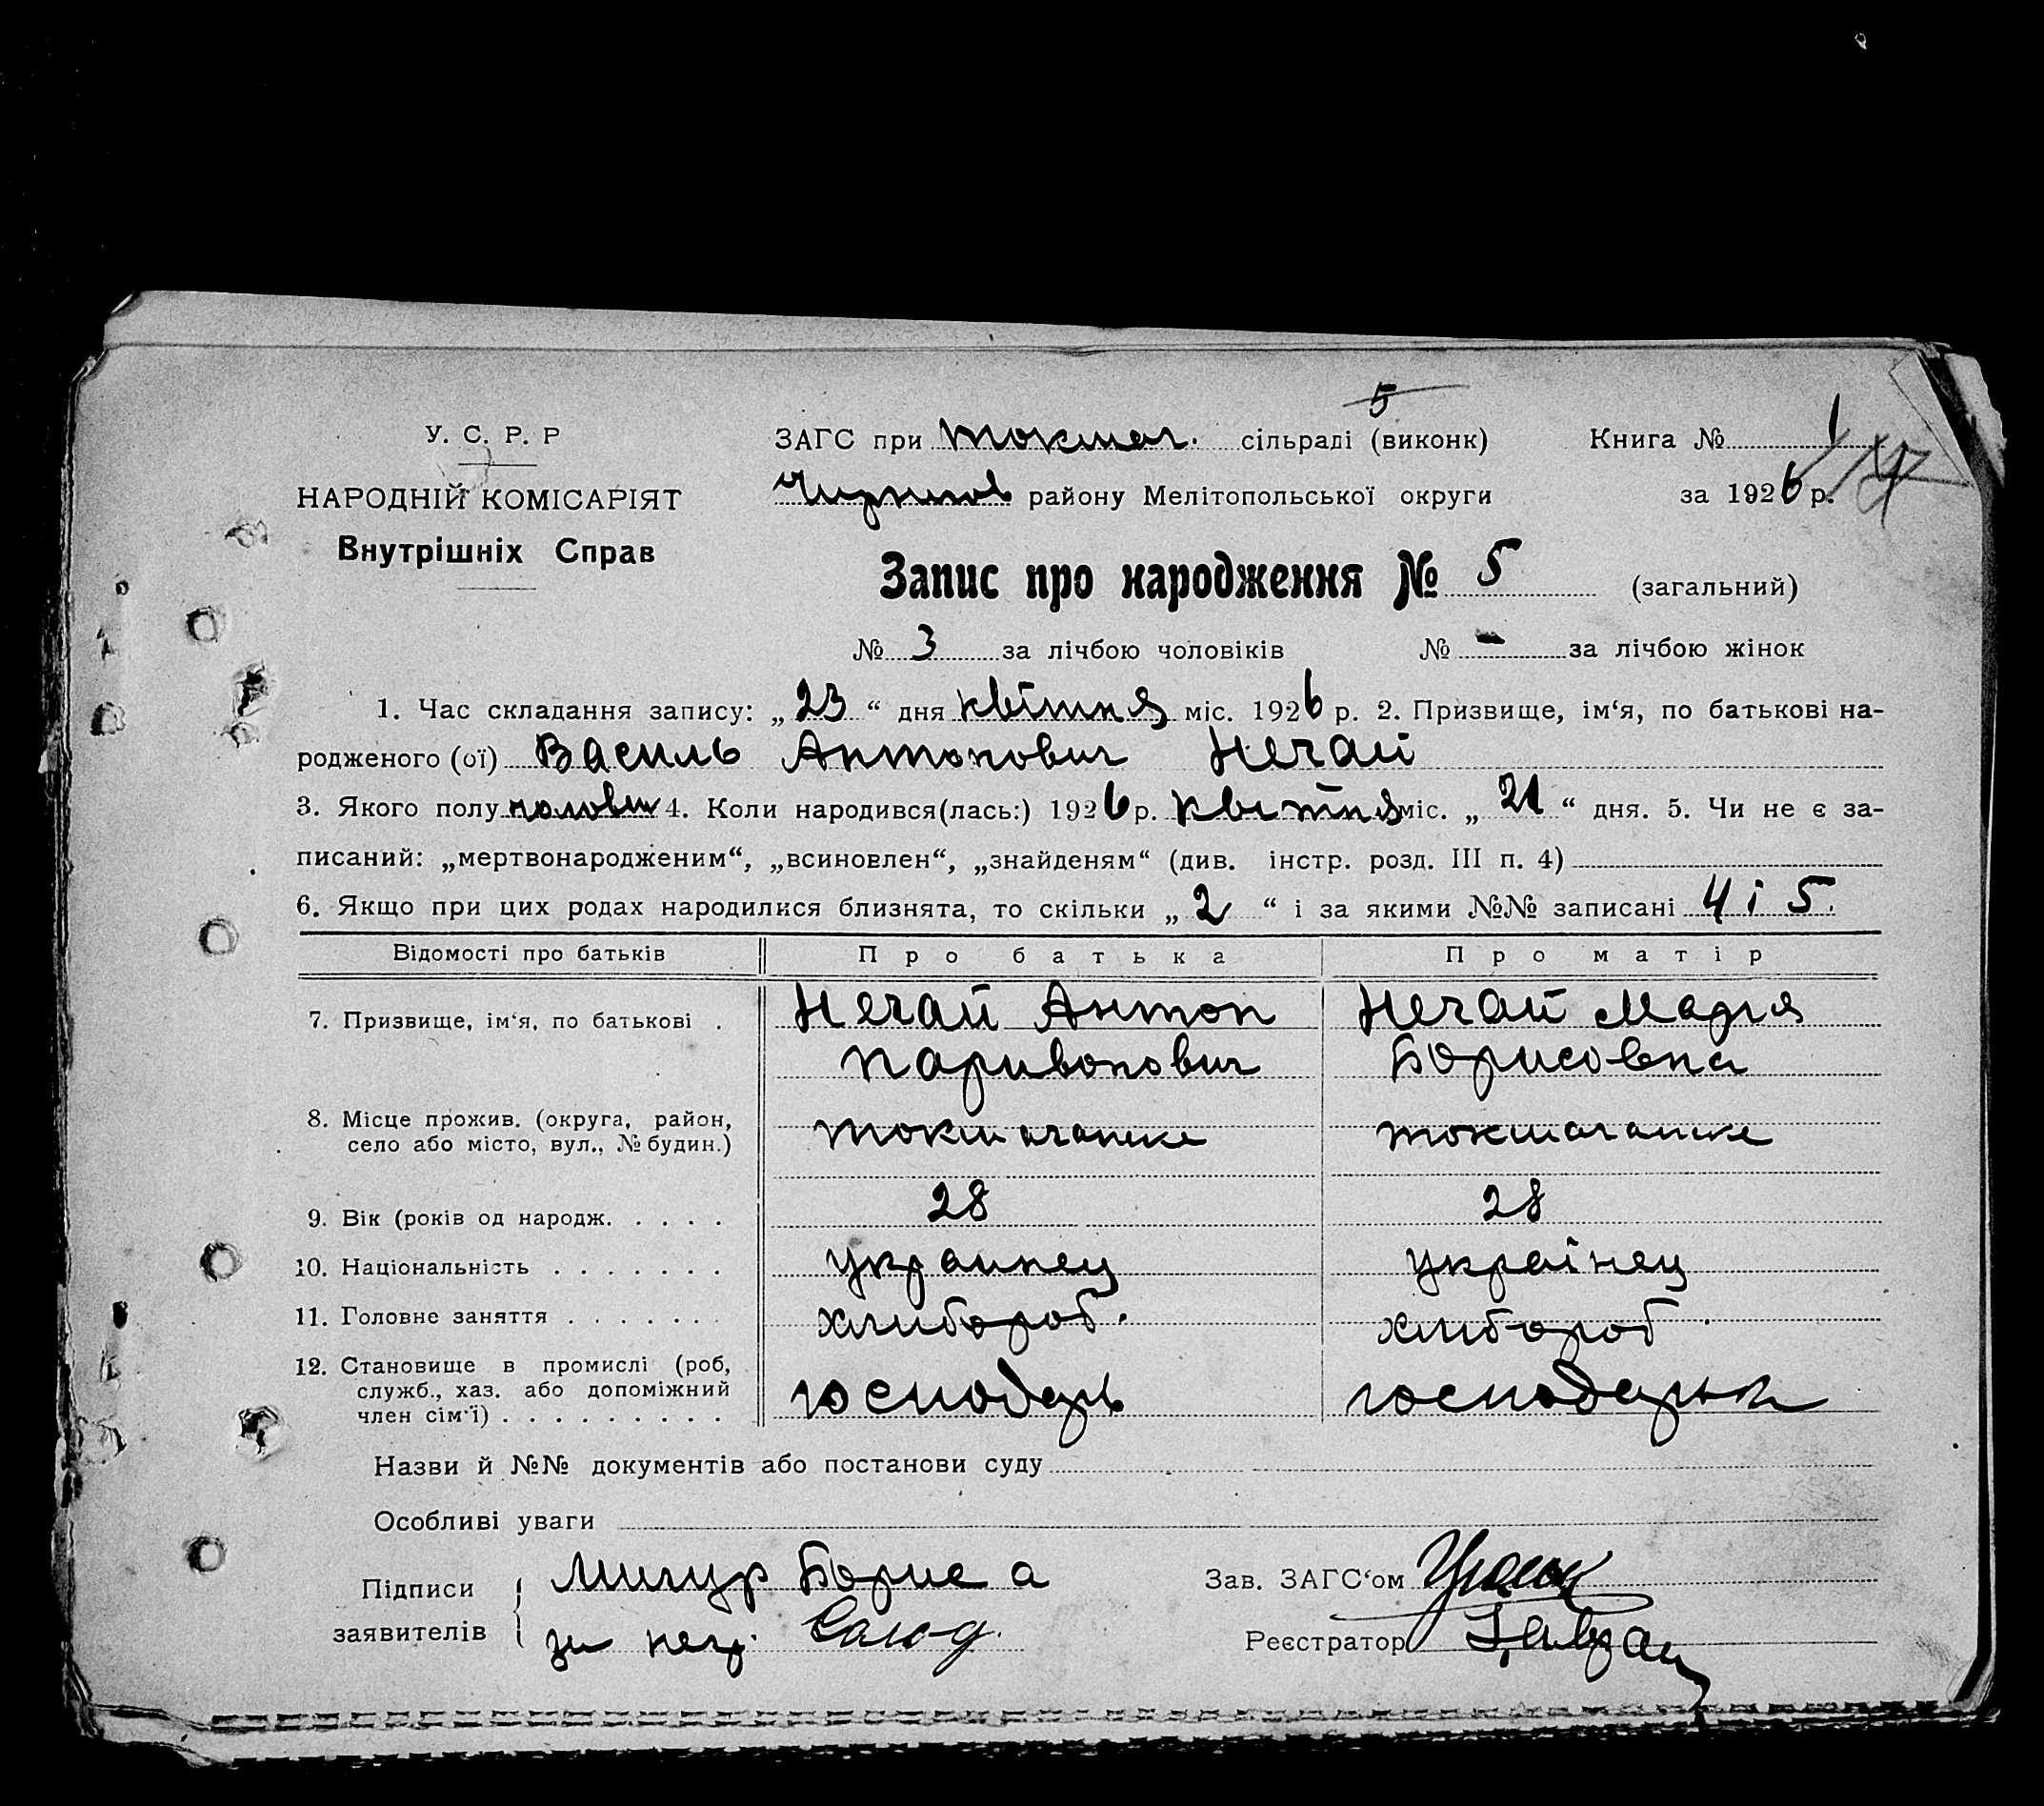 5
У. С. Р. Р ЗАГС при Токмач. сільраді (виконк) Книга № 1
НАРОДНІЙ КОМІСАРІЯТ району Мелітопольської округи за 1926 р.
Внутрішніх Справ
Запис про народження № 5 (загальний)
№ 3 за лічбою чоловіків № - за лічбою жінок
1. Час складання запису: „23“ дня квітня міс. 1926 р. 2. Призвище, ім‘я, по батькові на-
родженого (ої) Василь Антонович Нечай
3. Якого полу 4. Коли народився(лась:) 1926 р. квітня міс. „21“ дня. 5. Чи не є за-
писаний: „мертвонародженим“, „всиновлен“, „знайденям“ (див. інстр. розд. III п. 4)
6. Якщо при цих родах народилися близнята, то скільки „2“ і за якими №№ записані 4 і 5.
Відомості про батьків Про батька Про матір
7. Призвище, ім‘я, по батькові . Нечай Антон Нечай Мария
Паривонович Борисовна
8. Місце прожив. (округа, район,
село або місто, вул., № будин.)
9. Вік (років од народж. . . . . 28 28
10. Національність . . . . . . . украинец украінец
11. Головне заняття . . . . . . . хлибороб. хлибороб
12. Становище в промислі (роб,
служб., хаз. або допоміжний
член сім‘ї) . . . . . . . . . господарь
Назви й №№ документів або постанови суду
Особливі уваги
Підписи Борис а Зав. ЗАГС‘ом
заявителів за негр. Реєстратор